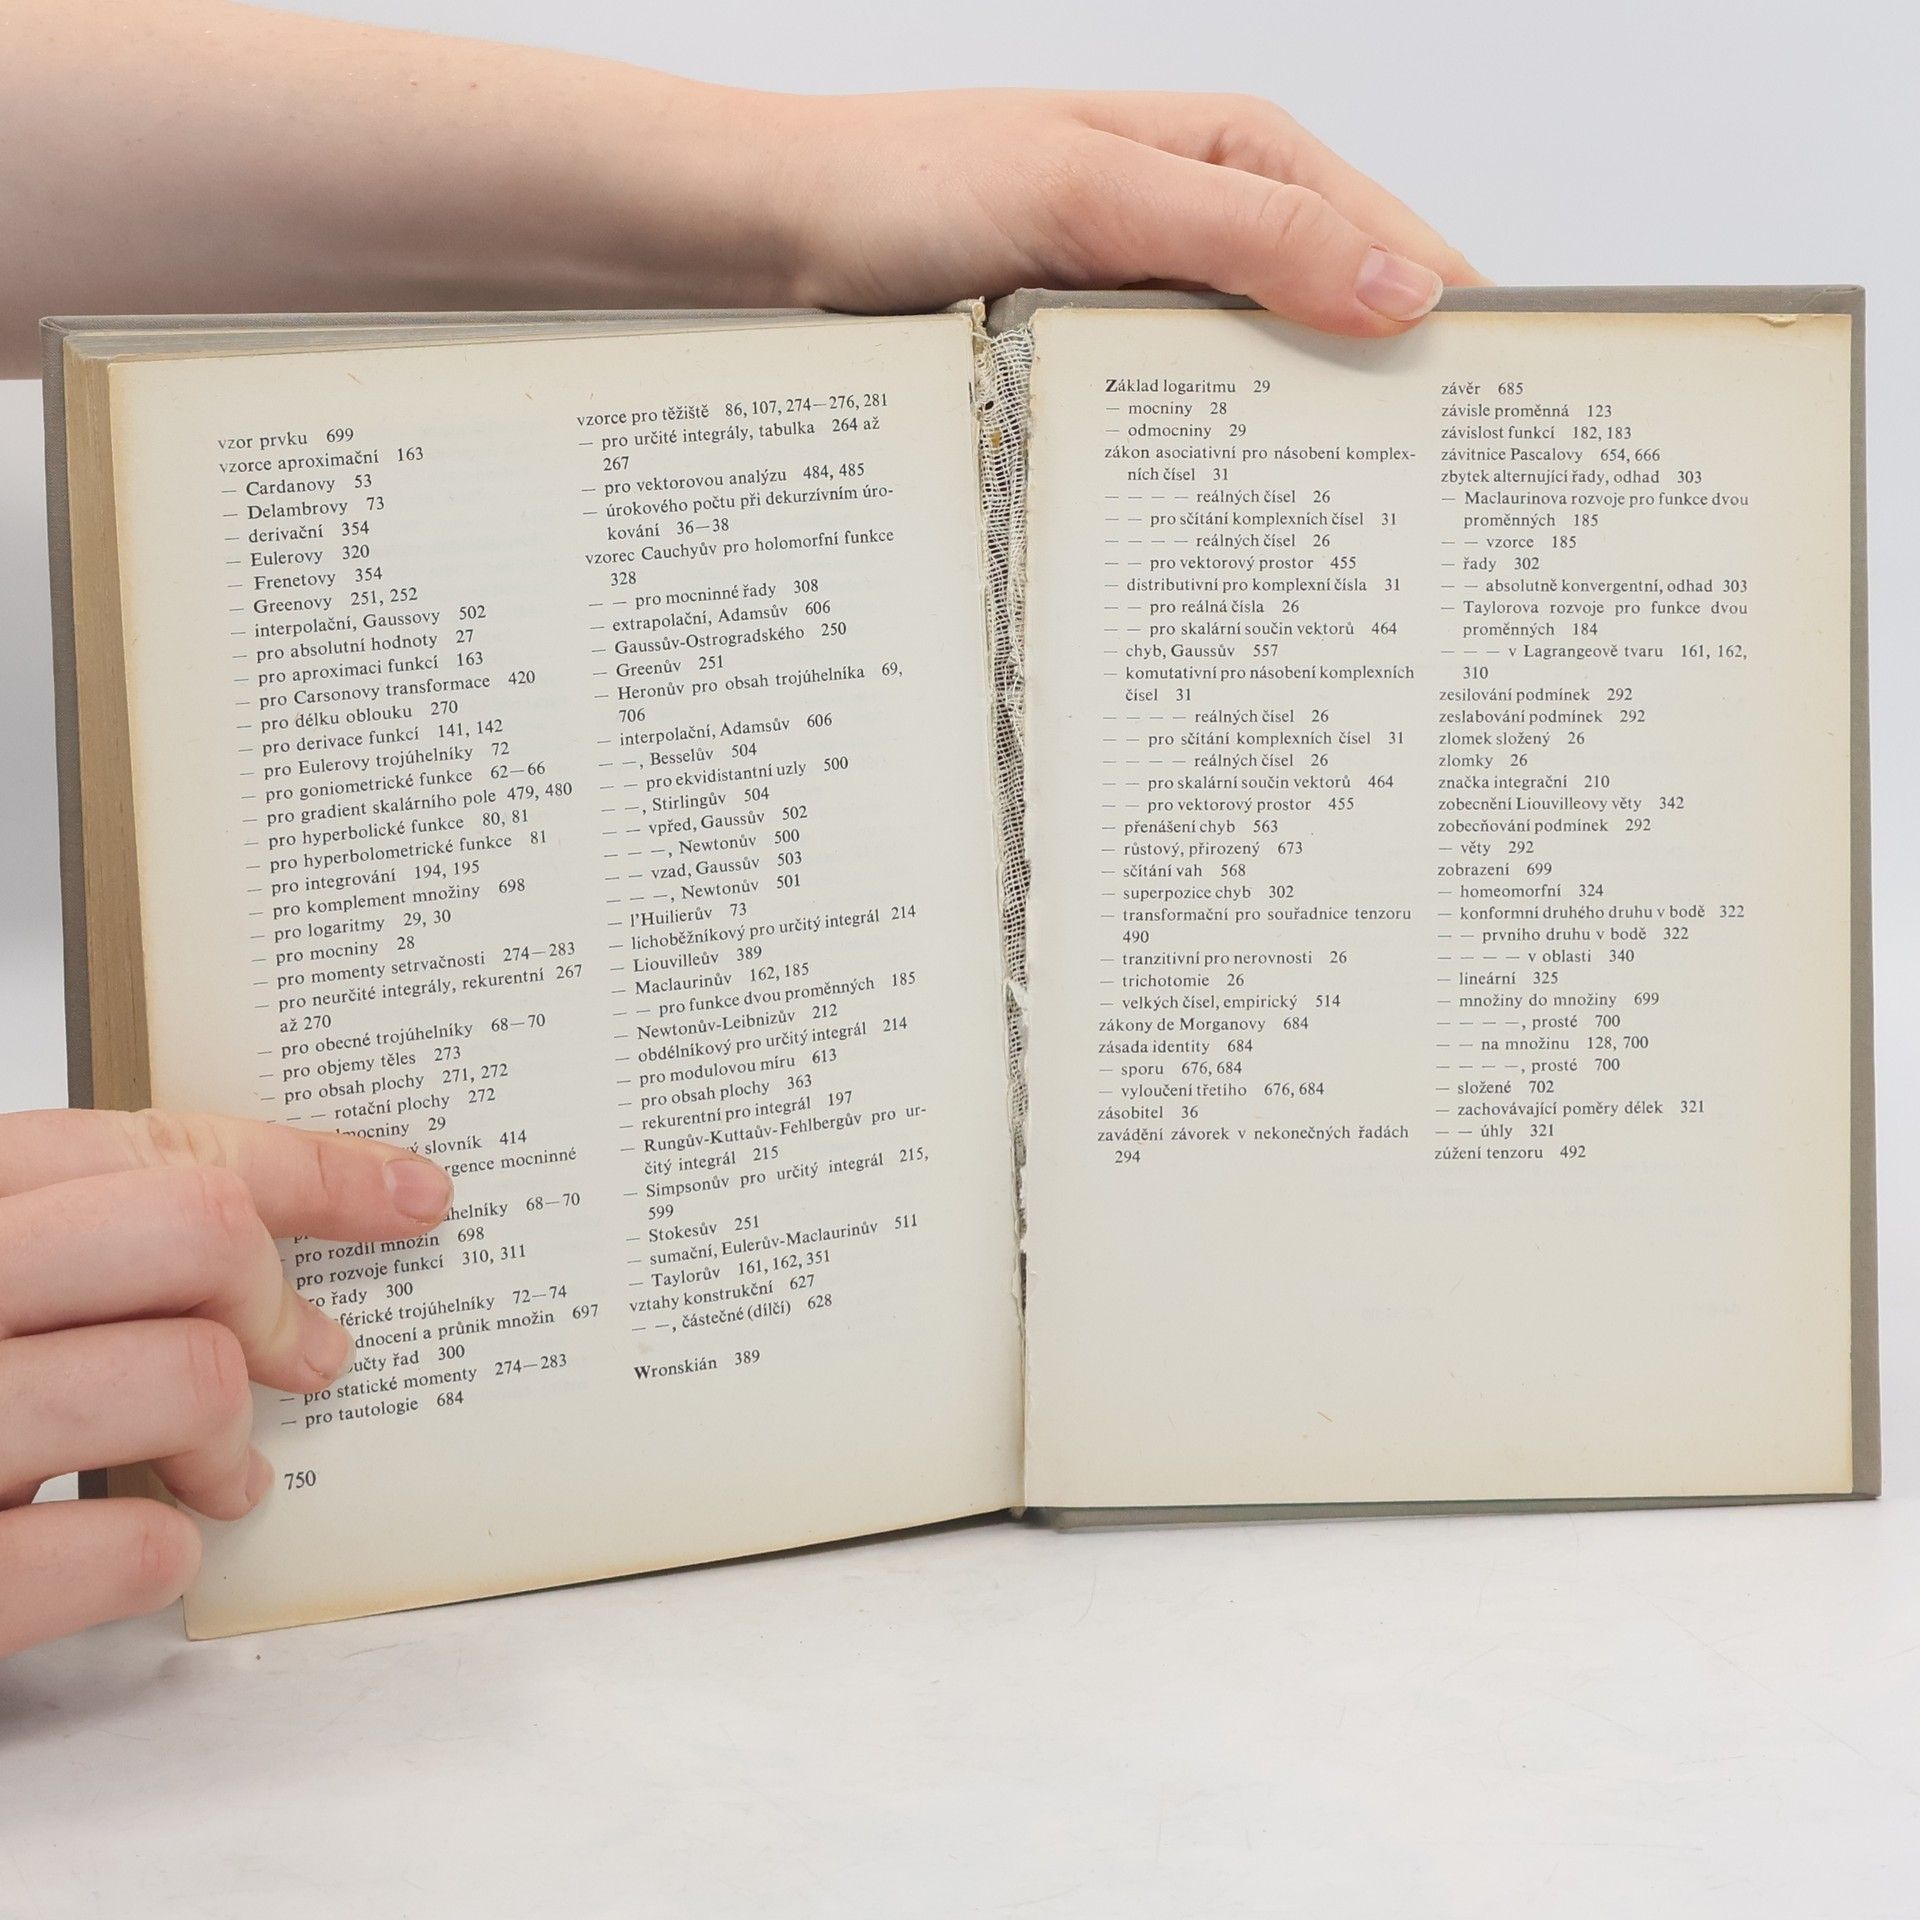 vzor prvku 699
vzorce aproximační 163
— Cardanovy 53
— Delambrovy 73
— derivační 354
— Eulerovy 320
— Frenetovy 354
— Greenovy 251, 252
— interpolační, Gaussovy 502
— pro absolutní hodnoty 27
— pro aproximaci funkcí 163
— pro Carsonovy transformace 420
— pro délku oblouku 270
— pro derivace funkcí 141, 142
— pro Eulerovy trojúhelníky 72
— pro goniometrické funkce 62—66
— pro gradient skalárního pole 479, 480
— pro hyperbolické funkce 80, 81
— pro hyperbolometrické funkce 81
— pro integrování 194, 195
— pro komplement množiny 698
— pro logaritmy 29, 30
— pro mocniny 28
— pro momenty setrvačnosti 274—283
— pro neurčité integrály, rekurentní 267
až 270
— pro obecné trojúhelníky 68—70
— pro objemy těles 273
— pro obsah plochy 271, 272
— — — rotační plochy 272
29
slovník 414
mocninné
68—70
— pro rozdíl množin 698
pro rozvoje funkcí 310, 311
řady 300
trojúhelníky 72—74
a průnik množin 697
řad 300
— pro statické momenty 274—283
— pro tautologie 684
750
vzorce pro těžiště 86, 107, 274—276, 281
— pro určité integrály, tabulka 264 až
267
— pro vektorovou analýzu 484, 485
— úrokového počtu při dekurzívním úro-
kování 36—38
vzorec Cauchyův pro holomorfní funkce
328
— — pro mocninné řady 308
— extrapolační, Adamsův 606
— Gaussův-Ostrogradského 250
— Greenův 251
— Heronův pro obsah trojúhelníka 69,
706
— interpolační, Adamsův 606
— —, Besselův 504
— — pro ekvidistantní uzly 500
— —, Stirlingův 504
— — vpřed, Gaussův 502
— — —, Newtonův 500
— — vzad, Gaussův 503
— — —, Newtonův 501
— l'Huilierův 73
— lichoběžníkový pro určitý integrál 214
— Liouvilleův 389
— Maclaurinův 162, 185
— — pro funkce dvou proměnných 185
— Newtonův-Leibnizův 212
— obdélníkový pro určitý integrál 214
— pro modulovou míru 613
— pro obsah plochy 363
— rekurentní pro integrál 197
— Rungův-Kuttaův-Fehlbergův pro ur-
čitý integrál 215
— Simpsonův pro určitý integrál 215,
599
— Stokesův 251
— sumační, Eulerův-Maclaurinův 511
— Taylorův 161, 162, 351
vztahy konstrukční 627
— —, částečné (dílčí) 628
Wronskián 389
Základ logaritmu 29
— mocniny 28
— odmocniny 29
zákon asociativní pro násobení komplex-
ních čísel 31
— — — — reálných čísel 26
— — pro sčítání komplexních čísel 31
— — — — reálných čísel 26
— — pro vektorový prostor 455
— distributivní pro komplexní čísla 31
— — pro reálná čísla 26
— — pro skalární součin vektorů 464
— chyb, Gaussův 557
— komutativní pro násobení komplexních
čísel 31
— — — — reálných čísel 26
— — pro sčítání komplexních čísel 31
— — — — reálných čísel 26
— — pro skalární součin vektorů 464
— — pro vektorový prostor 455
— přenášení chyb 563
— růstový, přirozený 673
— sčítání vah 568
— superpozice chyb 302
— transformační pro souřadnice tenzoru
490
— tranzitivní pro nerovnosti 26
— trichotomie 26
— velkých čísel, empirický 514
zákony de Morganovy 684
zásada identity 684
— sporu 676, 684
— vyloučení třetího 676, 684
zásobitel 36
zavádění závorek v nekonečných řadách
294
závěr 685
závisle proměnná 123
závislost funkcí 182, 183
závitnice Pascalovy 654, 666
zbytek alternující řady, odhad 303
— Maclaurinova rozvoje pro funkce dvou
proměnných 185
— — vzorce 185
— řady 302
— — absolutně konvergentní, odhad 303
— Taylorova rozvoje pro funkce dvou
proměnných 184
— — — v Lagrangeově tvaru 161, 162,
310
zesilování podmínek 292
zeslabování podmínek 292
zlomek složený 26
zlomky 26
značka integrační 210
zobecnění Liouvilleovy věty 342
zobecňování podmínek 292
— věty 292
zobrazení 699
— homeomorfní 324
— konformní druhého druhu v bodě 322
— — prvního druhu v bodě 322
— — — — v oblasti 340
— lineární 325
— množiny do množiny 699
— — — —, prosté 700
— — na množinu 128, 700
— — — —, prosté 700
— složené 702
— zachovávající poměry délek 321
— — úhly 321
zúžení tenzoru 492